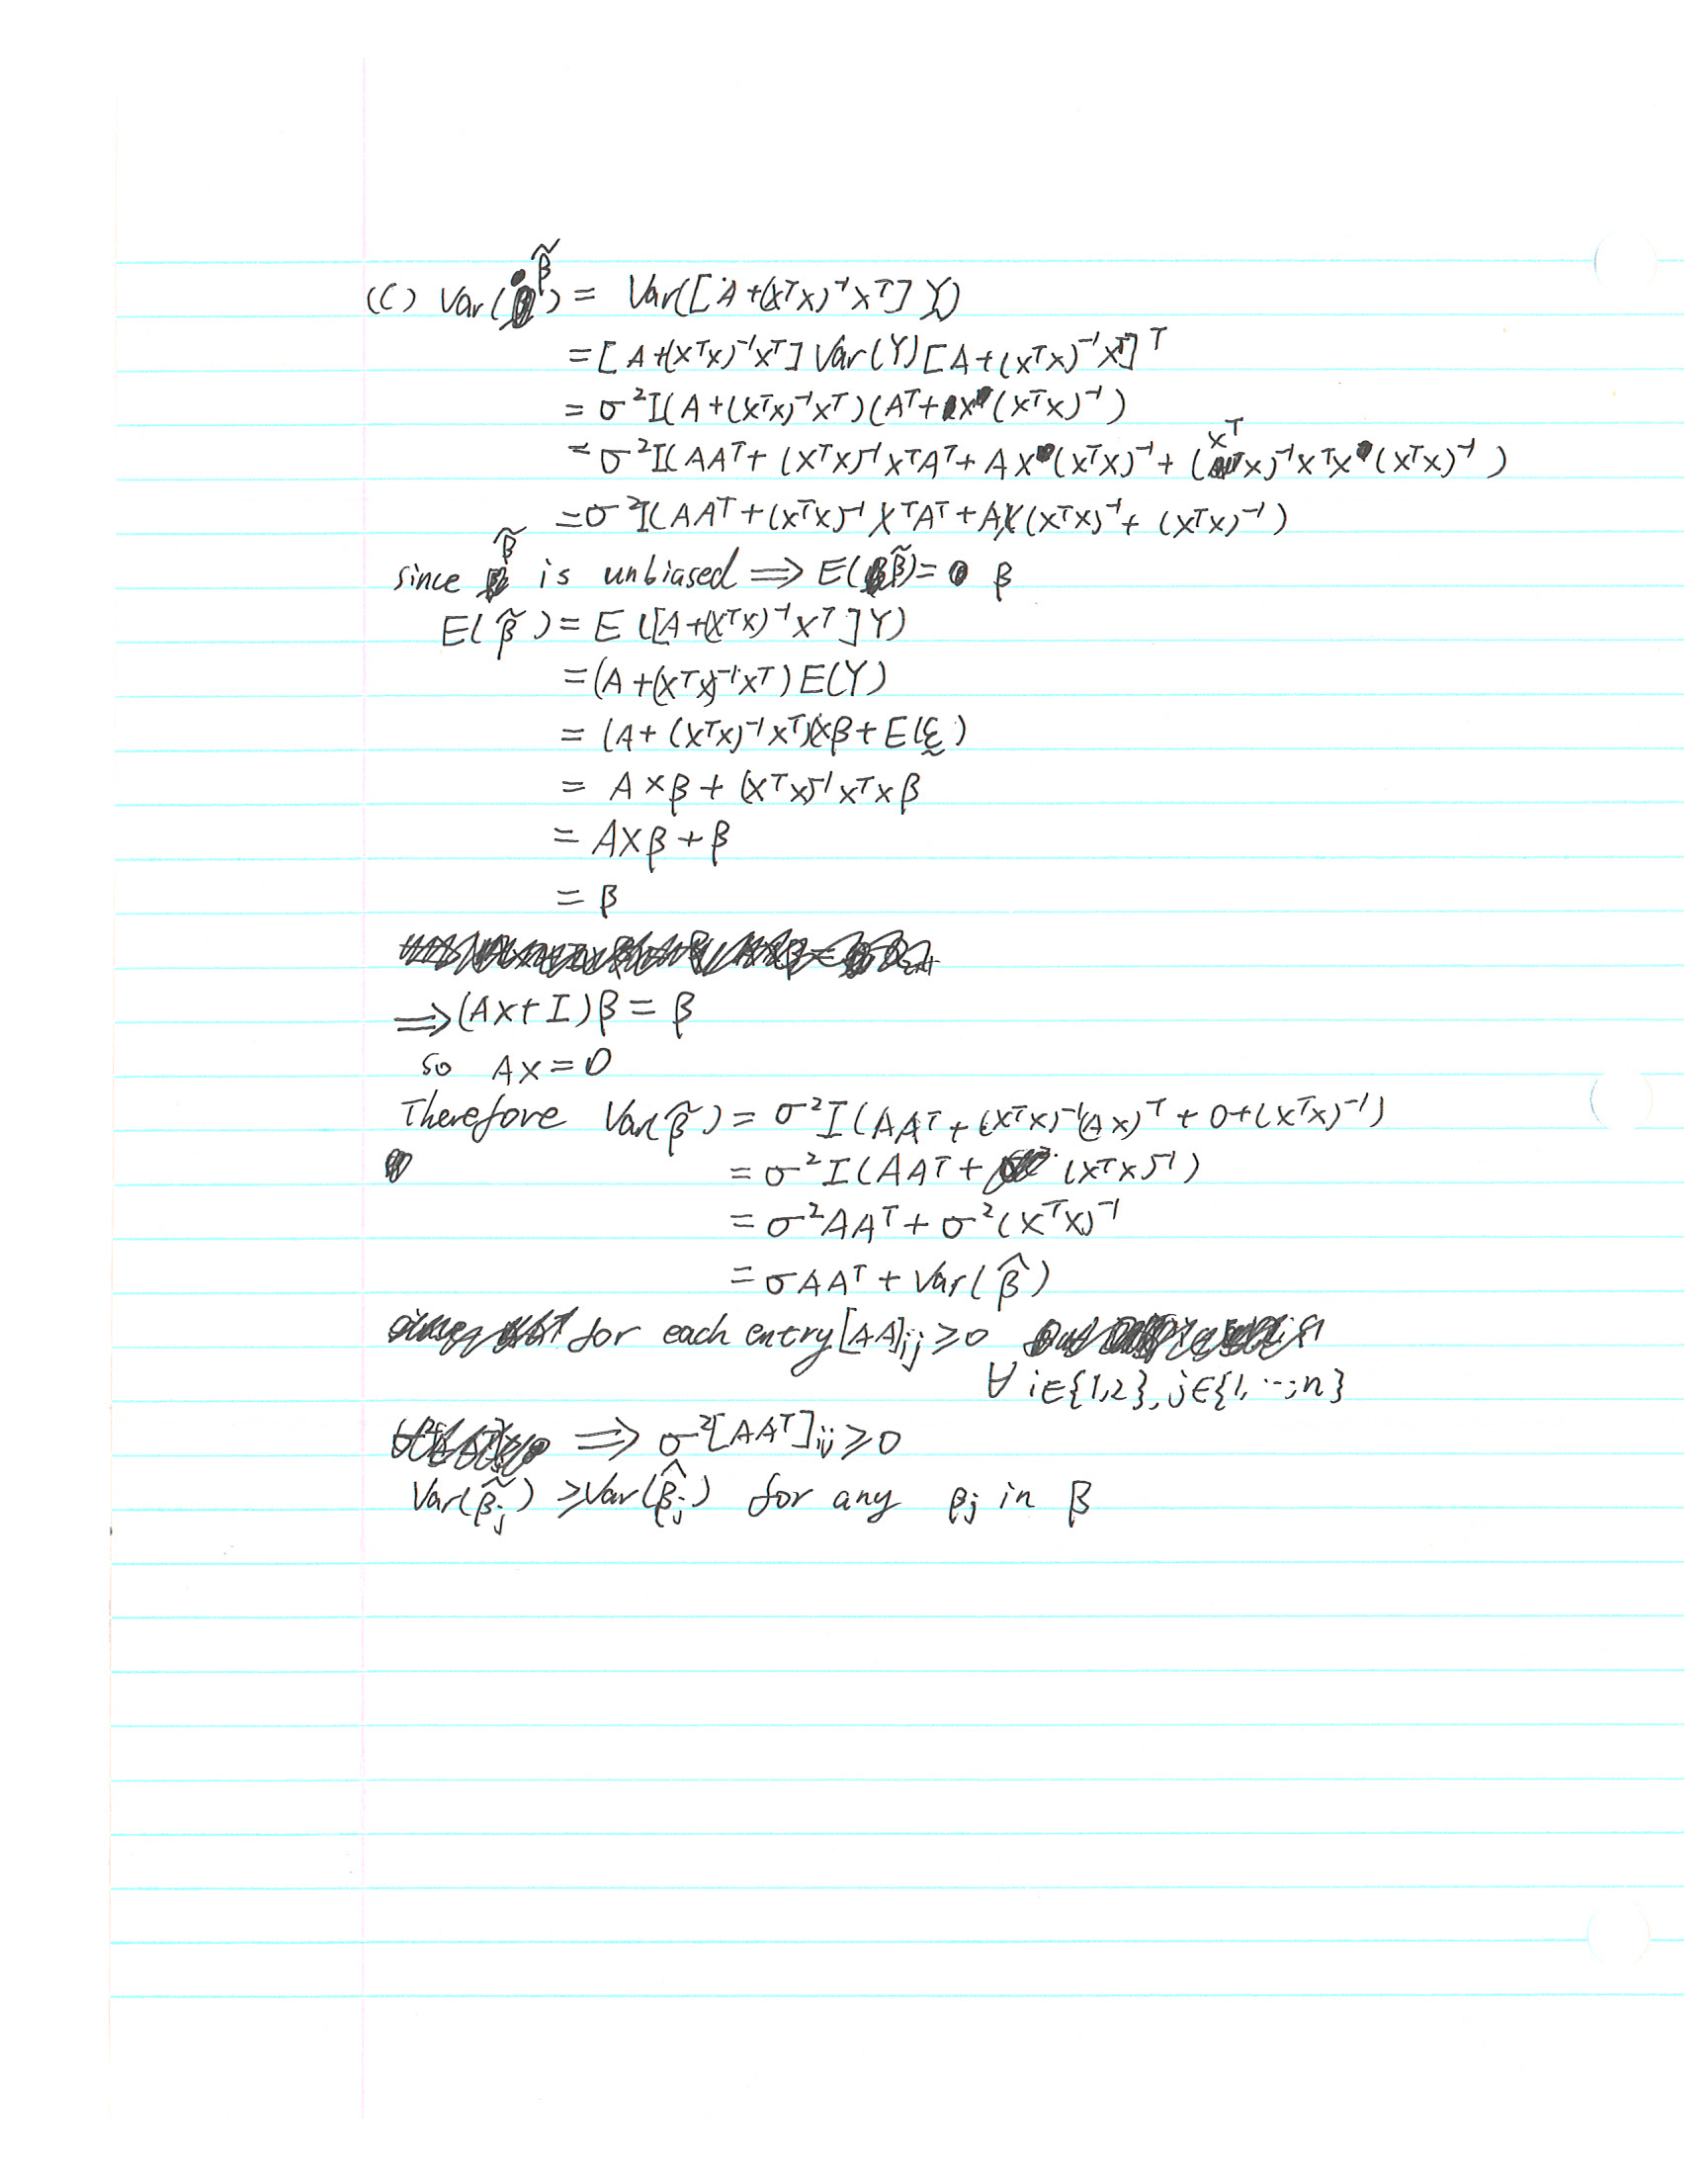 (C) Var(β̃) = Var([A+(XᵀX)⁻¹Xᵀ]Y)
=[A+(XᵀX)⁻¹Xᵀ]Var(Y)[A+(XᵀX)⁻¹Xᵀ]ᵀ
= σ²I(A+(XᵀX)⁻¹Xᵀ)(Aᵀ+X(XᵀX)⁻¹)
= σ²I(AAᵀ+(XᵀX)⁻¹XᵀAᵀ+AX(XᵀX)⁻¹+(XᵀX)⁻¹XᵀX(XᵀX)⁻¹)
=σ²I(AAᵀ+(XᵀX)⁻¹XᵀAᵀ+AX(XᵀX)⁻¹+(XᵀX)⁻¹)
since β̃ is unbiased ⟹ E(β̃)= β
E(β̃)= E([A+(XᵀX)⁻¹Xᵀ]Y)
=(A+(XᵀX)⁻¹Xᵀ)E(Y)
= (A+(XᵀX)⁻¹Xᵀ)(Xβ+E(ε)
= AXβ+(XᵀX)⁻¹XᵀXβ
= AXβ+β
= β
⟹(AX+I)β=β
so AX=0
Therefore Var(β̃)= σ²I(AAᵀ+(XᵀX)⁻¹(AX)ᵀ+0+(XᵀX)⁻¹)
= σ²I(AAᵀ+(XᵀX)⁻¹)
= σ²AAᵀ+σ²(XᵀX)⁻¹
= σAAᵀ+Var(β̂)
for each entry[AA]ij≥0
∀ i∈{1,2}, j∈{1,...,n}
⟹ σ²[AAᵀ]ij≥0
Var(β̃j) ≥Var(β̂j) for any βj in β